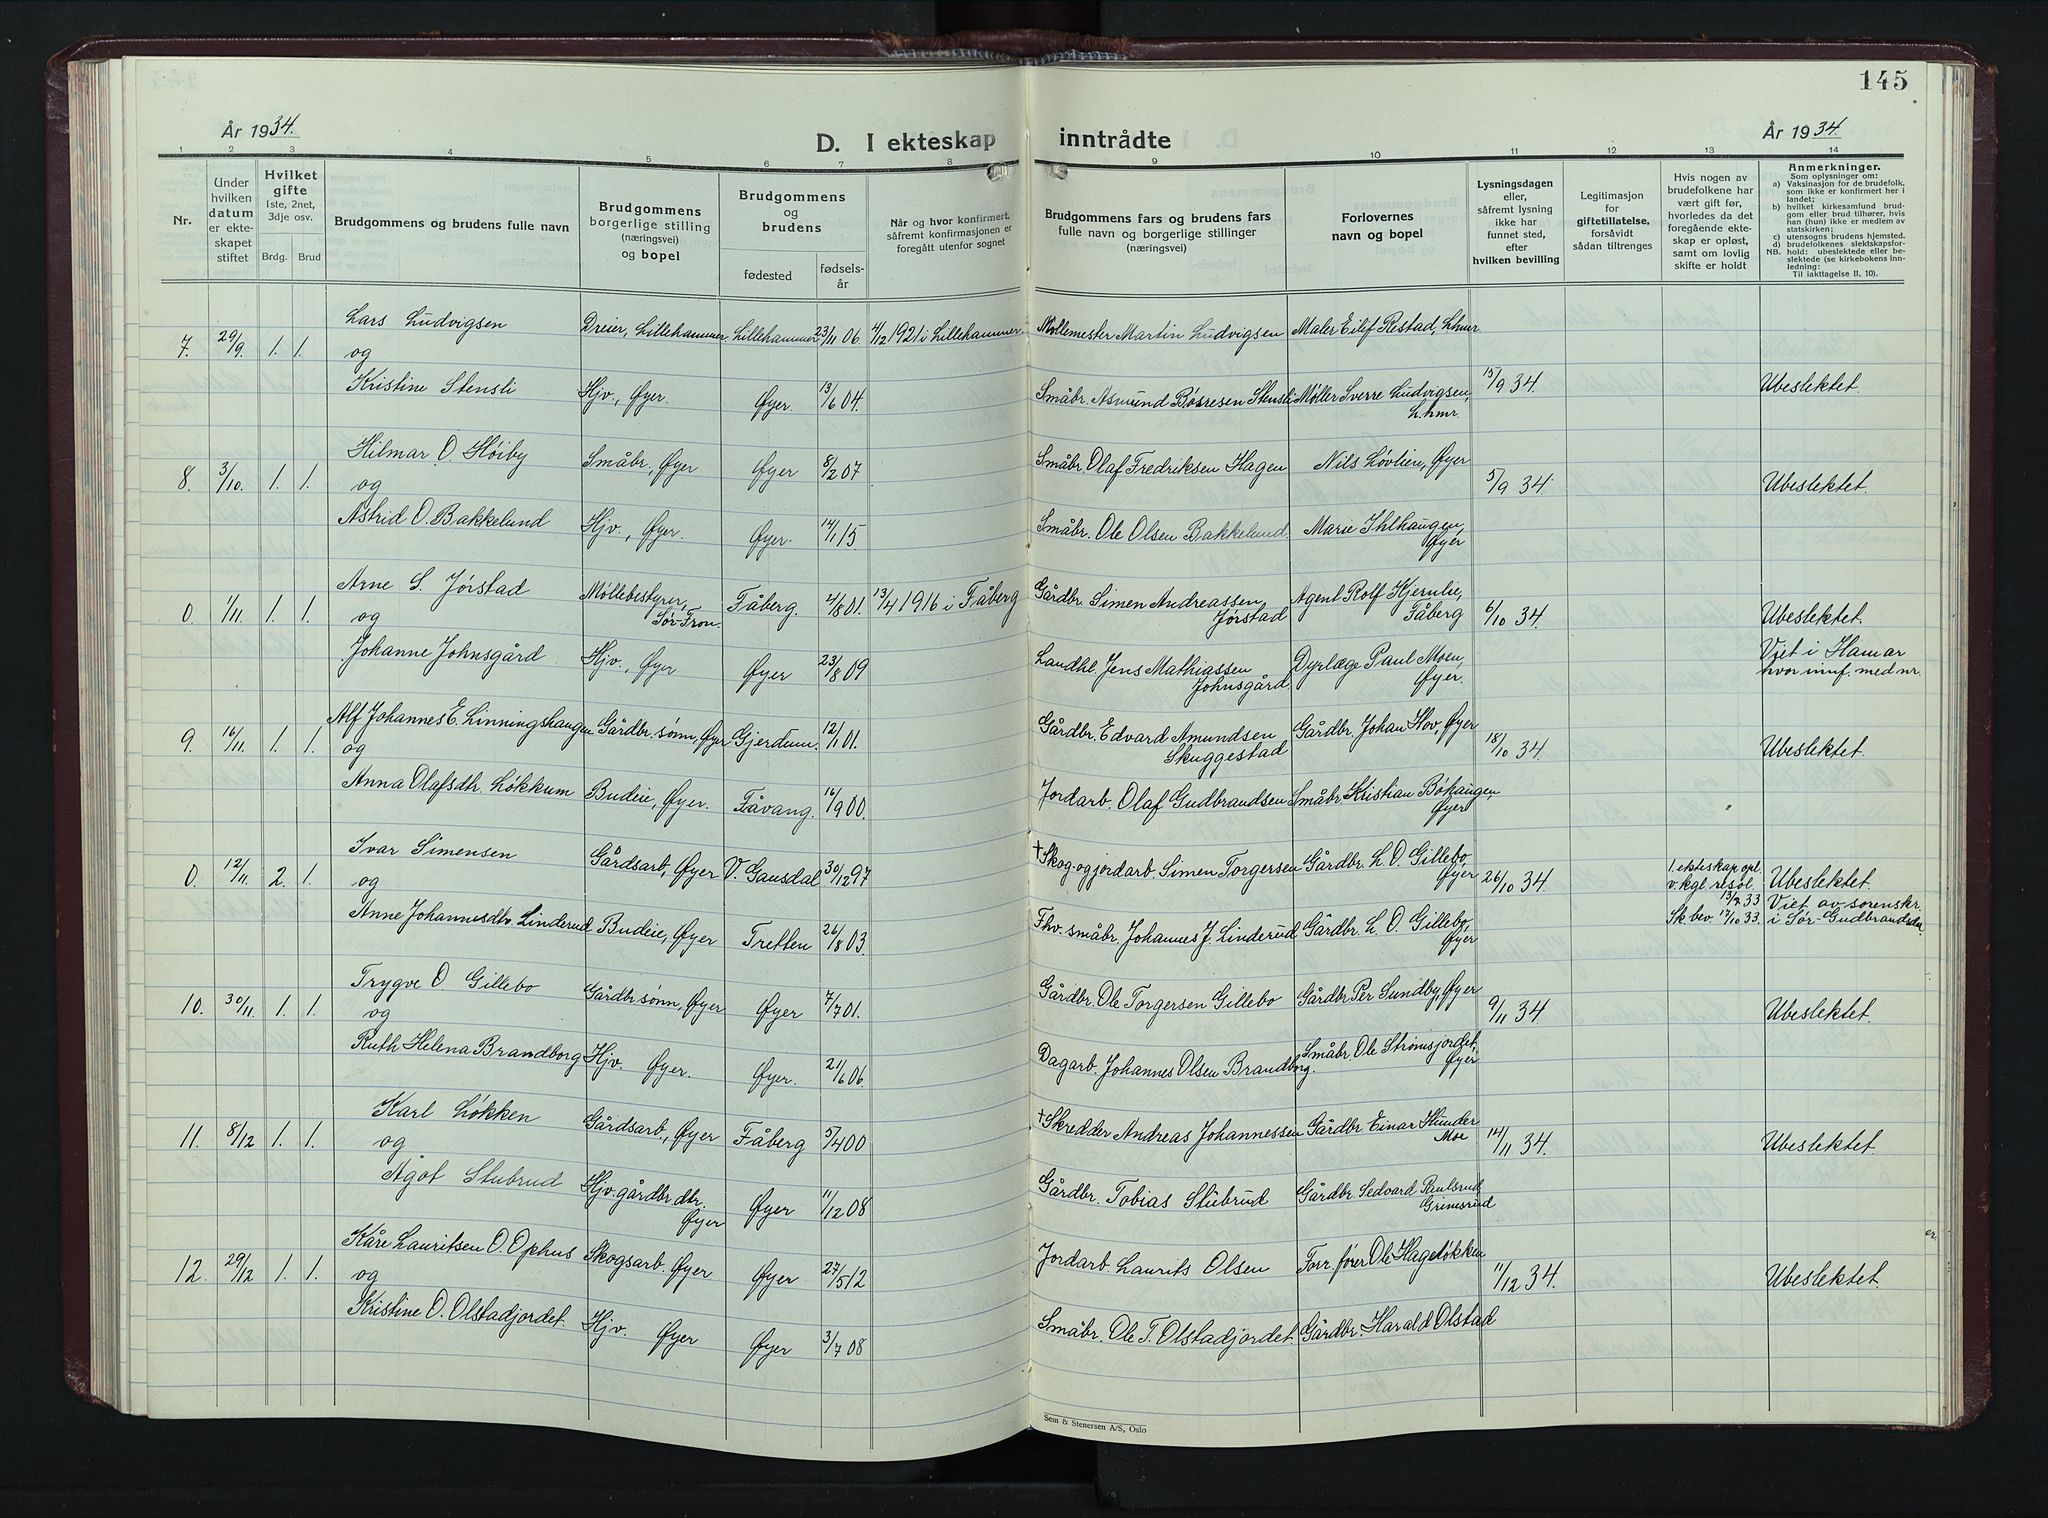 145
År 1934.
D. I ekteskap inntrådte
År 1934.
1 2 3 4 5 6 7 8 9 10 11 12 13 14
Nr.
Under hvilken datum er ekteskapet stiftet
Hvilket gifte 1ste, 2net, 3dje osv.
Brdg. Brud
Brudgommens og brudens fulle navn
Brudgommens borgerlige stilling (næringsvei) og bopel
Brudgommens og brudens
fødested
fødselsår
Når og hvor konfirmert, såfremt konfirmasjonen er foregått utenfor sognet
Brudgommens fars og brudens fars fulle navn og borgerlige stillinger (næringsvei)
Forlovernes navn og bopel
Lysningsdagen eller, såfremt lysning ikke har funnet sted, efter hvilken bevilling
Legitimasjon for giftetillatelse, forsåvidt sådan tiltrenges
Hvis nogen av brudefolkene har vært gift før, hvorledes da det foregående ekteskap er opløst, samt om lovlig skifte er holdt
Anmerkninger.
Som oplysninger om:
a) Vaksinasjon for de brudefolk, som ikke er konfirmert her i landet;
b) hvilket kirkesamfund brudgom eller brud tilhører, hvis han (hun) ikke er medlem av statskirken;
c) utensogns brudens hjemsted.
d) brudefolkenes slektskapsforhold: ubeslektede eller beslektede (se kirkebokens innledning:
NB.
Til iakttagelse II. 10).
Lars Ludvigsen Dreier, Lillehammer Lillehammer 23/11 06 4/12 1921 i Lillehammer. Møllemester Martin Ludvigsen Maler Eilif Restad, Lhmr
7. 29/9. 1. 1. og 15/9 34. Ubeslektet.
Kristine Stensli Hjv., Øyer. Øyer. 13/6 04. Småbr. Asmund Børresen Stensli Møller Sverre Ludvigsen, Lhmr.
Hilmar O. Høiby Småbr., Øyer Øyer 8/2 07 Småbr. Olaf Fredriksen Hagen Nils Løvlien, Øyer
8. 3/10. 1. 1. og 5/9 34. Ubeslektet.
Astrid O. Bakkelund Hjv., Øyer. Øyer. 14/1 15 Småbr. Ole Olsen Bakkelund. Marie Ihlhaugen, Øyer
Arne S. Jørstad Møllebestyrer, Sør-Fron. Fåberg. 2/8 01. 13/4 1916 i Fåberg Gårdbr. Simen Andreassen Jørstad Agent Rolf Hjernlie, Fåberg
0. 1/11. 1. 1. og 6/10 34. Ubeslektet.
Johanne Johnsgård Hjv., Øyer Øyer 23/8 09 Landhl. Jens Mathiassen Johnsgård. Dyrlæge Paul Moen, Øyer. Viet i Hamar hvor innf. med nr.
Alf Johannes E. Linningshaugen Gårdbr. sønn, Øyer Gjerdrum. 12/1 01. Gårdbr. Edvard Amundsen Skuggestad Gårdbr. Johan Hov, Øyer
9. 16/11. 1. 1. og 18/10 34. Ubeslektet.
Anna Olafsdtr. Løkkum Budeie, Øyer. Fåvang. 16/9 00. Jordarb. Olaf Gudbrandsen Småbr Kristian Bøhaugen, Øyer
Ivar Simensen Gårdsarb., Øyer V. Gausdal 30/12 97 † Skog- og jordarb. Simen Torgersen Gårdbr. L. O. Gillebo, Øyer 1. ekteskap opl. v. kgl. resol. 13/7 33 Sk bev 17/10 33.
0. 12/11. 2. 1. og 26/10 34. Ubeslektet. Viet av sorenskr. i Sør-Gudbrandsdal.
Anne Johannesdtr. Linderud Budeie, Øyer Tretten 26/8 03. Fhv. småbr. Johannes J. Linderud Gårdbr. L. O. Gillebo, Øyer
Trygve O. Gillebo Gårdbr sønn, Øyer Øyer 7/7 01. Gårdbr. Ole Torgersen Gillebo Gårdbr Per Sundby, Øyer
10. 30/11. 1. 1. og 9/11 34. Ubeslektet.
Ruth Helena Brandborg Hjv. Øyer. Øyer. 21/6 06 Dagarb. Johannes Olsen Brandborg. Småbr. Ole Strømsjordet, Øyer
Karl Løkken Gårdsarb., Øyer Fåberg 5/4 00 † Skredder Andreas Johannessen Gårdbr. Einar Hunder Moe
11. 8/12 1. 1. og 14/11 34. Ubeslektet.
Ågot Stubrud Hjv. gårdbr. dtr. Øyer Øyer 11/12 08 Gårdbr. Tobias Stubrud Gårdbr. Sedvard Paulsrud Grimsrud
Kåre Lauritsen O. Ophus Skogsarb. Øyer Øyer 27/5 12 Jordarb. Laurits Olsen Forr. fører Ole Hageløkken
12. 29/12 1. 1. og 11/12 34. Ubeslektet.
Kristine O. Olstadjordet. Hjv. Øyer Øyer 3/7 08 Småbr. Ole T. Olstadjordet. Gårdbr. Harald Olstad
Sem & Stenersen A/S, Oslo